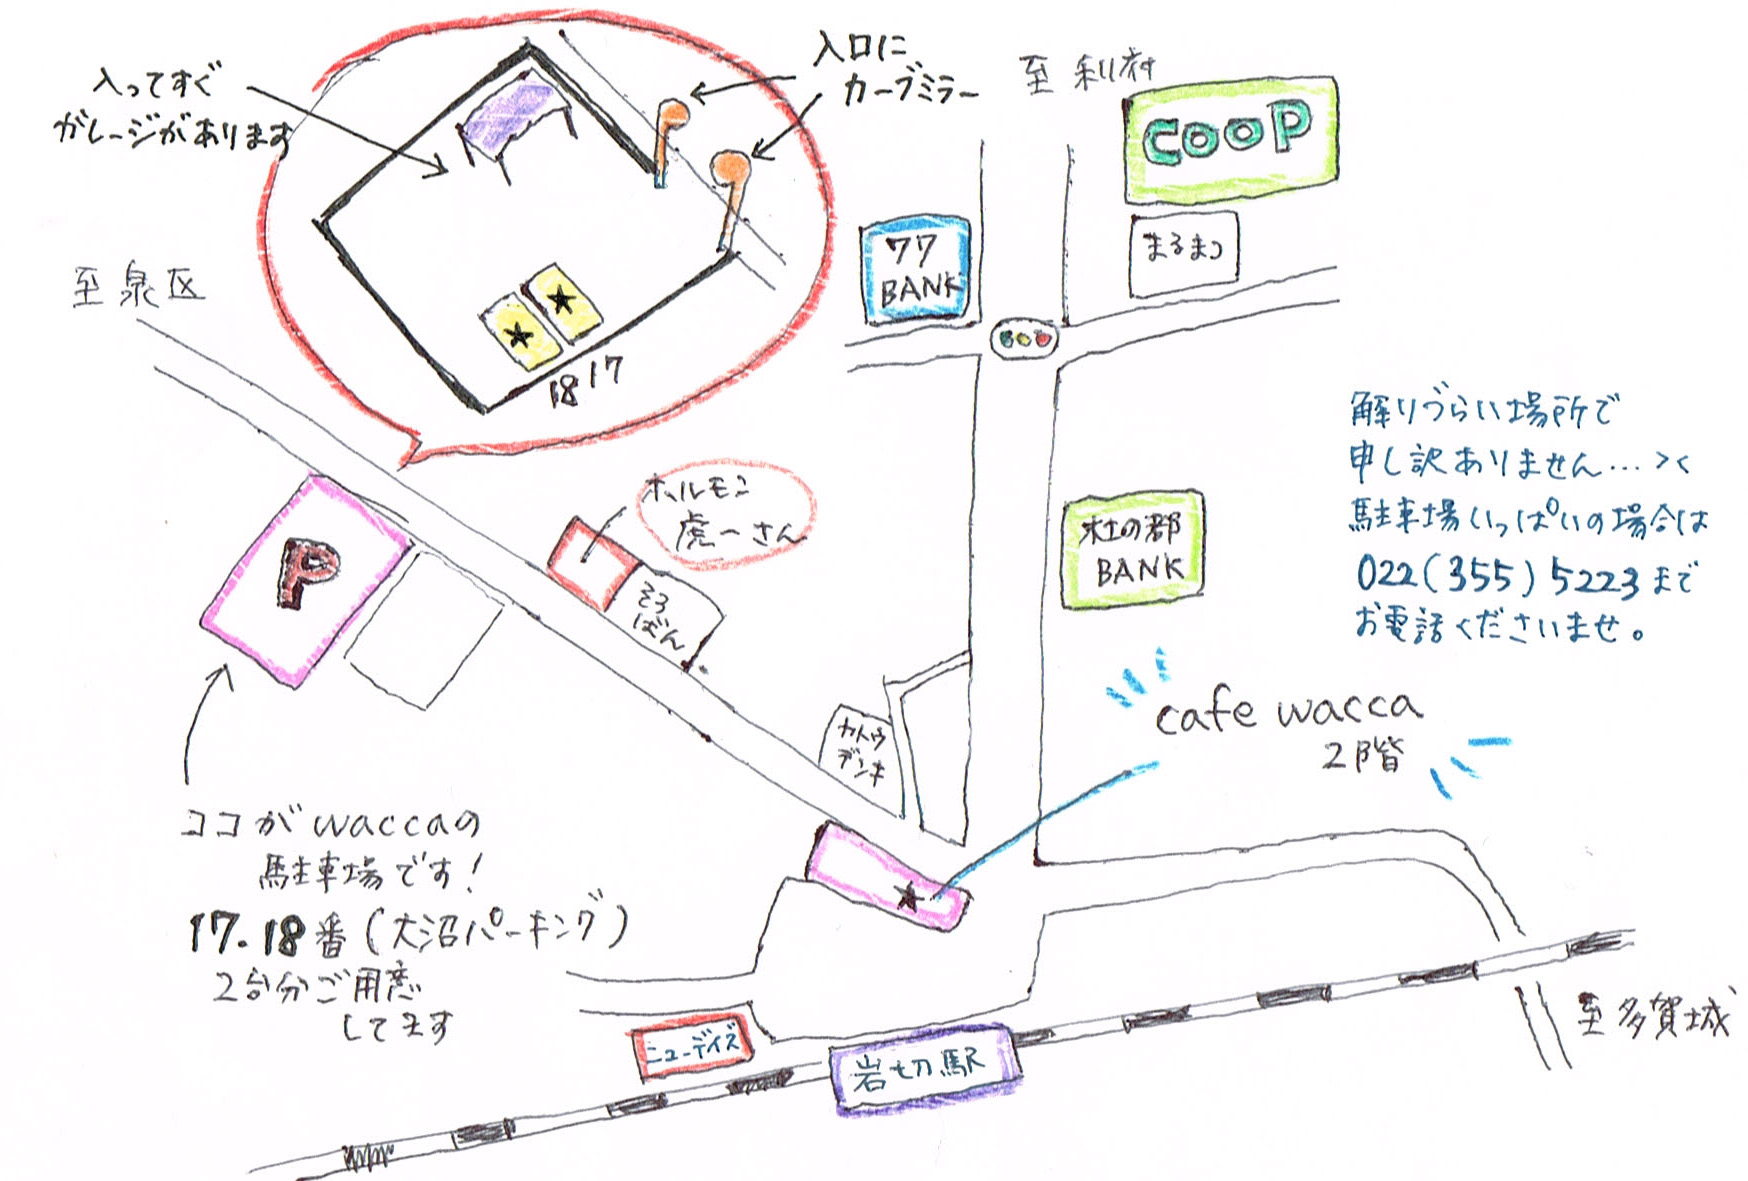 入ってすぐ
ガレージがあります
入口に
カーブミラー
至利府
COOP
まるまつ
77
BANK
至泉区
18 17
解りづらい場所で
申し訳ありません…><
駐車場いっぱいの場合は
022(355)5223まで
お電話くださいませ。
ホルモン
虎一さん
そろ
ばん
杜の都
BANK
P
カトウ
デンキ
cafe wacca
2階
ココがwaccaの
駐車場です!
17.18番(大沼パーキング)
2台分ご用意
してます
ニューデイズ
岩切駅
至多賀城